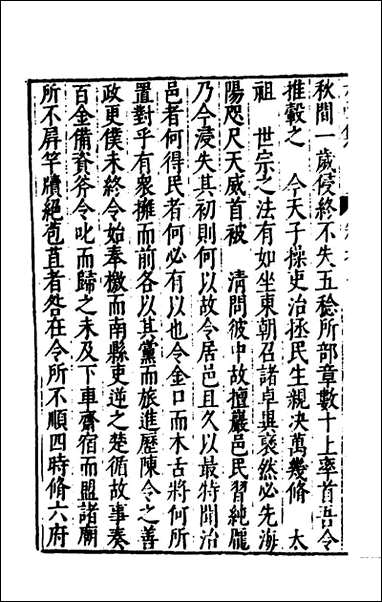 秋間一歲侵終不失五稔所部章數十上率首吾令
推轂之　今天子操吏治拯民生親决萬幾脩　太
祖　世宗之法有如坐東朝召諸卓異裒然必先海
陽咫尺天威首被　清問彼中故擅巖邑民習純龎
乃今浸失其初則何以故令居邑且久以最特聞治
邑者何得民者何必有以也令金口而木舌將何所
置對乎有衆擁而前各以其黨而旅進歷陳令之善
政更僕未終令始奉檄而南縣吏逆之楚循故事奏
百金備資斧令叱而歸之未及下車齋宿而盟諸廟
所不屏竿牘絕苞苴者咎在令所不順四時脩六府